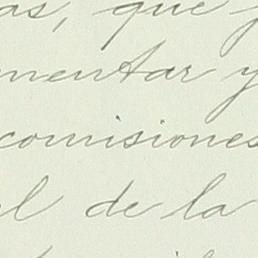 as, que
mentar y
comisiones
al de la